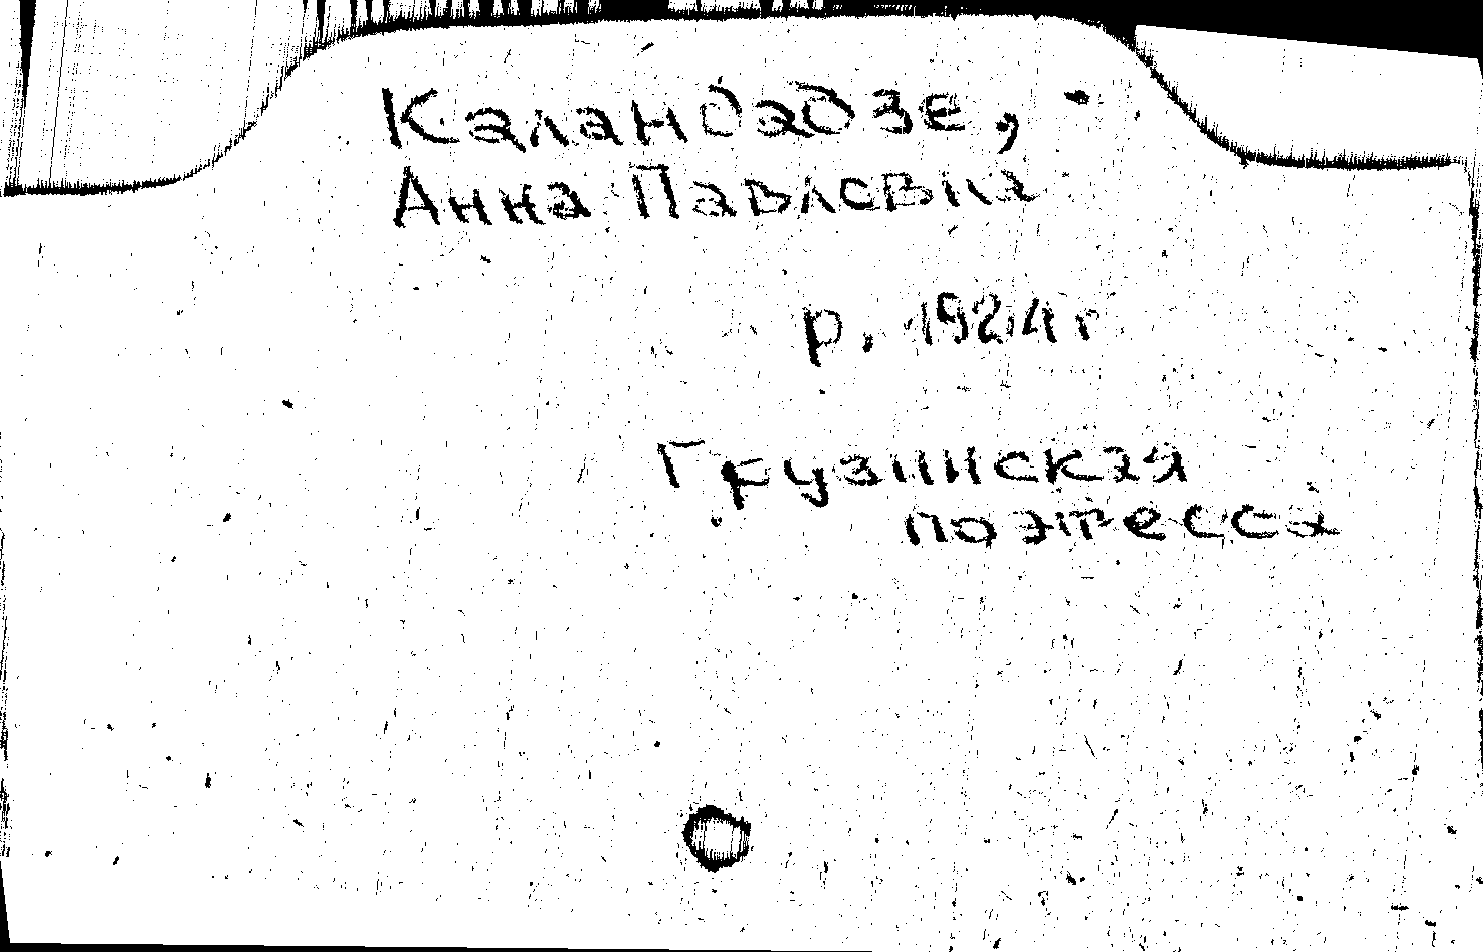 Каландадзе,
Анна Павловна
р. 1924 г
Грузинская
поэтесса